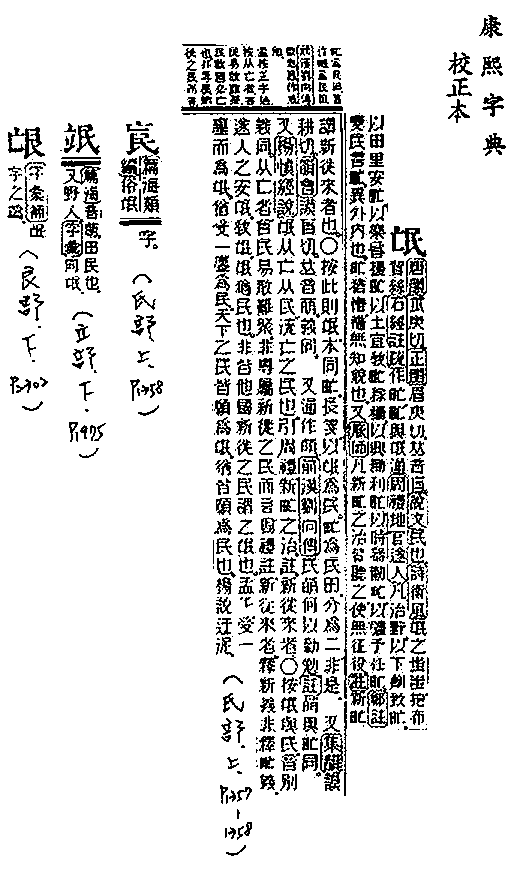 康熙字典
校正本
氓 唐韻武庚切正韻眉庚切𠀤音盲說文民也詩衛風氓之蚩蚩抱布
貿絲石經註疏作甿甿與氓通周禮地官遂人凡治野以下劑致甿
以田里安甿以樂昏擾甿以土宜教甿稼穡以興耡利甿以時器勸甿以彊予任甿鄭註
變民言甿異外內也甿猶懵懵無知貌也又旅師凡新甿之治皆聽之使無征役註新甿
謂新徙來者也○按此則氓本同甿長箋以氓爲民甿爲民田分爲二非是 又集韻謨
耕切韻會謨盲切𠀤音萌義同 又通作萌前漢劉向傳民萌何以勸勉註萌與甿同
又楊慎經說氓从亡从民流亡之民也引周禮新甿之治註新徙來者○按氓與民音別
義同从亡者言民易散難聚非專屬新徙之民而言周禮註新徙來者釋新義非釋甿義
遂人之安甿教甿甿猶民也非皆他國新徙之民謂之氓也孟子受一
廛而爲氓猶受一廛爲民天下之民皆願爲氓猶皆願爲民也楊說迂泥
(氏部.上. P.1257-1258)
篇海類
編俗氓
字.(氏部上. P.1258)
篇海音萌田民也
又野人字彙同氓
(立部.下. P.1975)
字彙補氓
字之譌
(艮部.下.